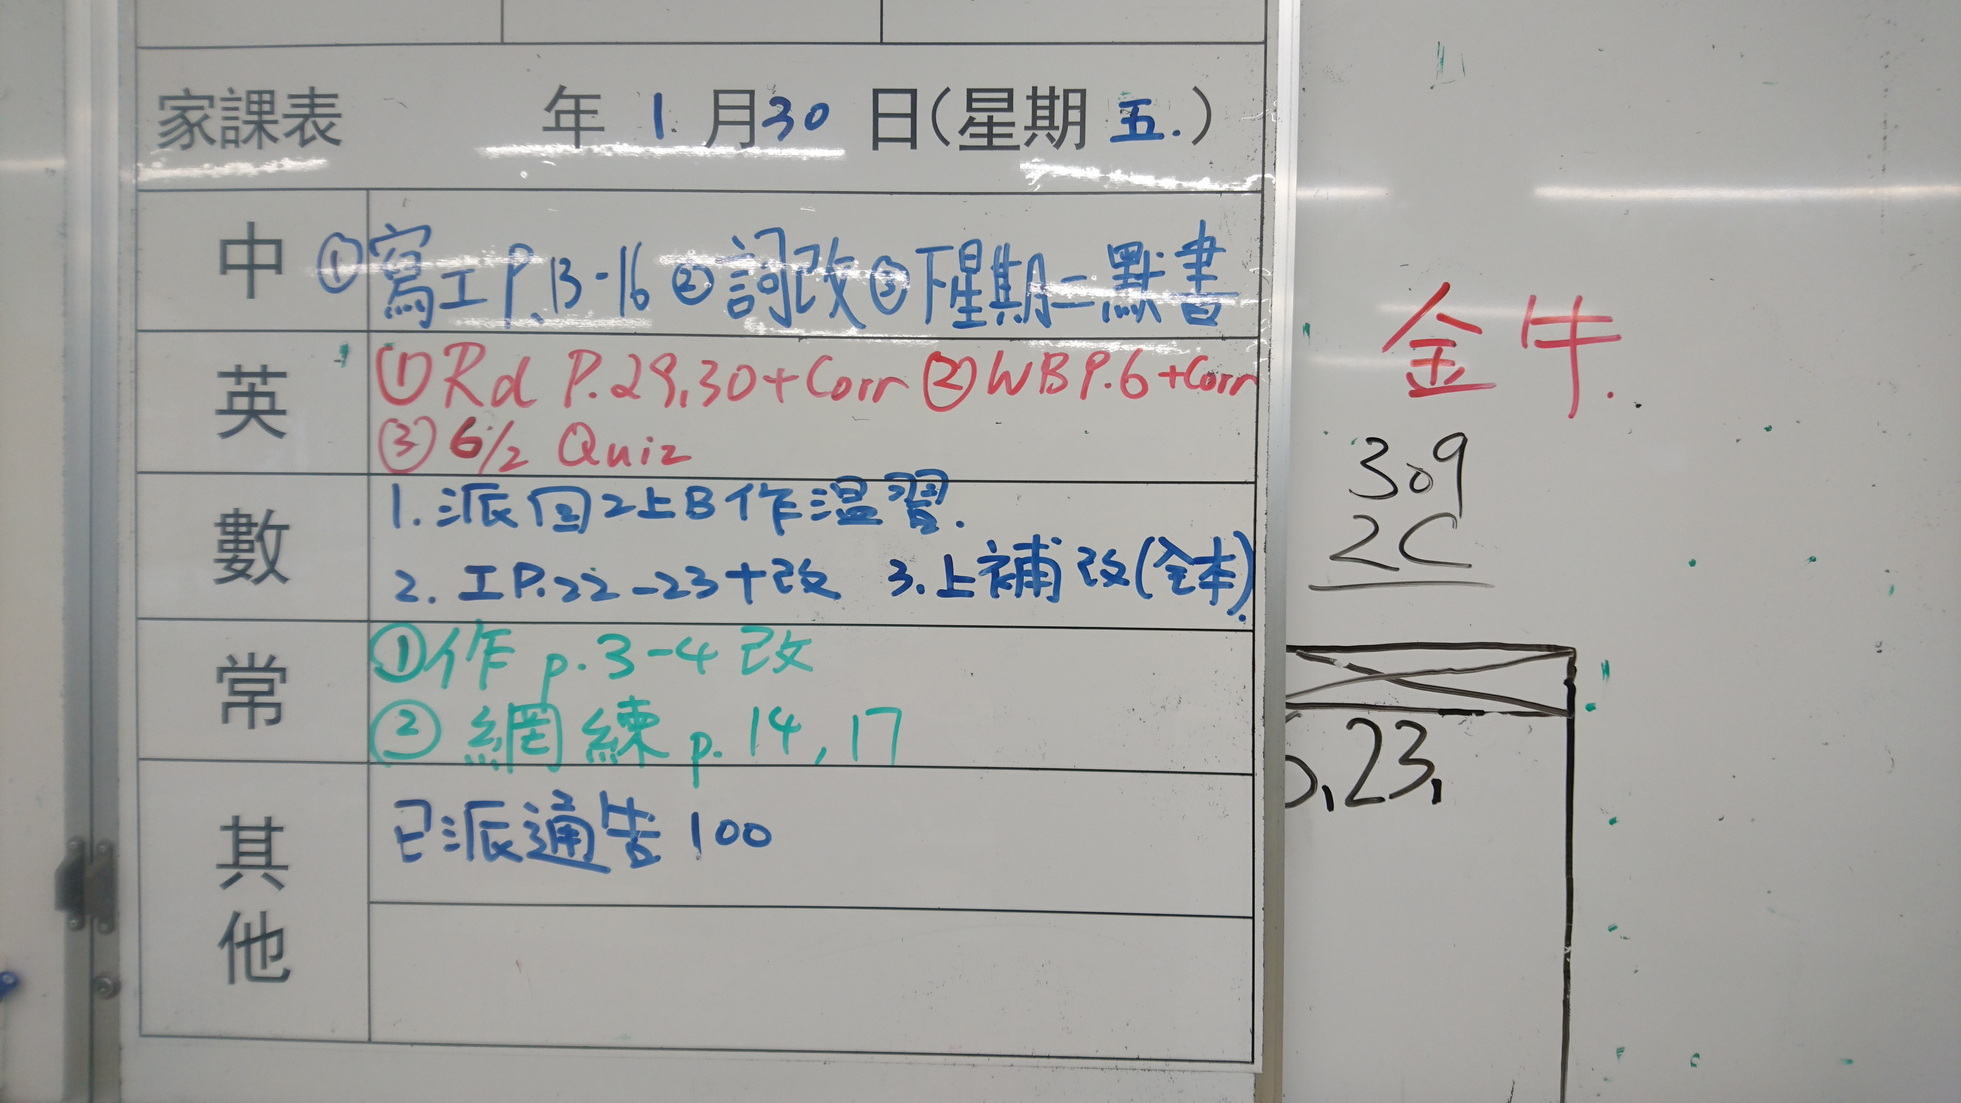 家課表 年 1 月 30 日(星期 五.)
中 ①寫工P.13-16 ②詞改 ③下星期二默書
英 ①Rd P.29,30+Corr ②WB P.6+Corr
③ 6/2 Quiz
數 1. 派回2上B作温習.
2. 工P.22-23+改 3. 上補改(全本).
常 ①作 p.3-4 改
② 網練 p. 14, 17
其他 已派通告 100
金牛.
309
2C
,23,